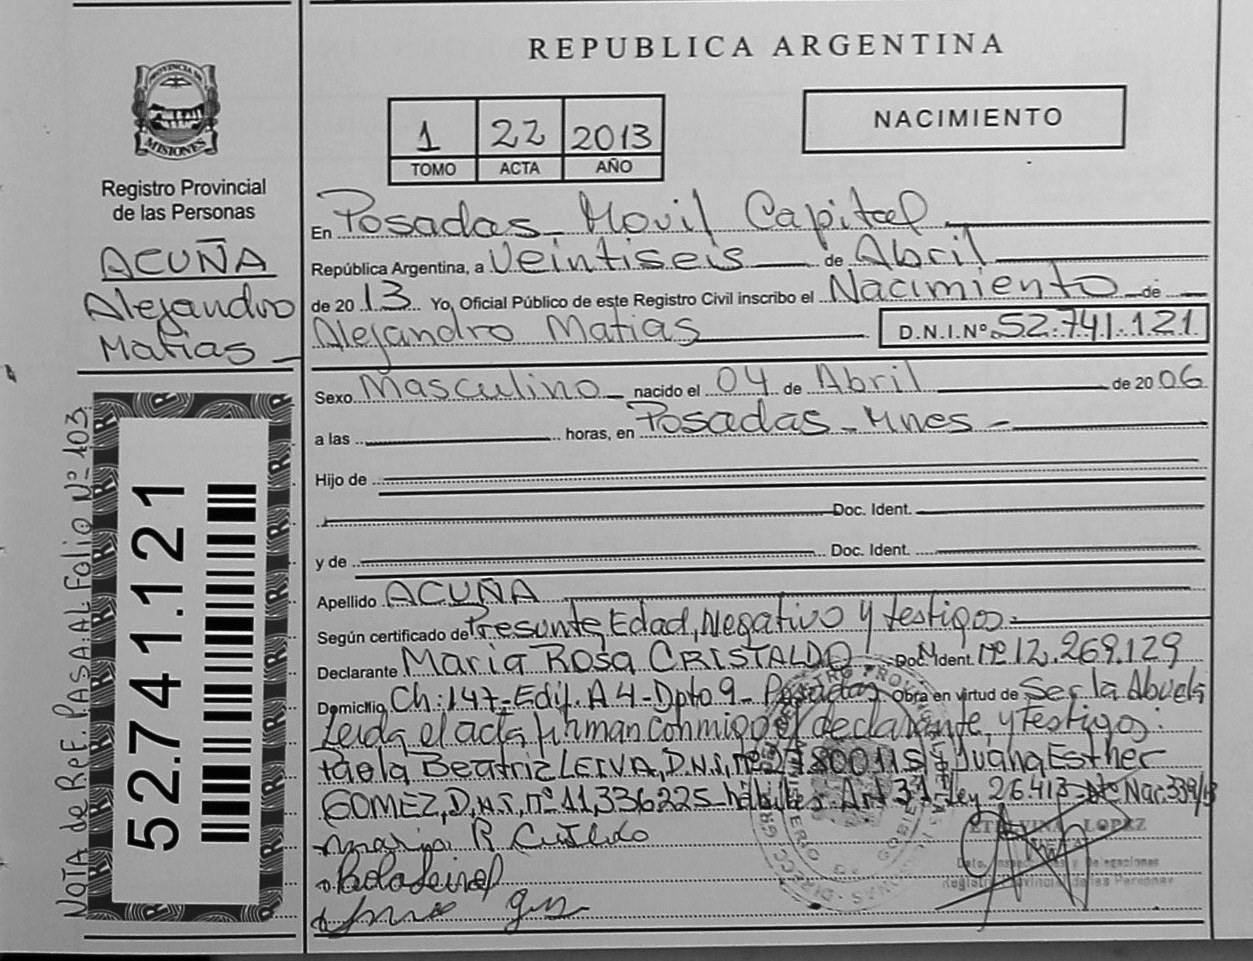 REPUBLICA ARGENTINA
PROVINCIA DE
MISIONES
Registro Provincial
de las Personas
ACUÑA
Alejandro
Matias
NOTA de ReF. PASA: AL Folio Nº 103
52.741.121
1 22 2013
TOMO ACTA AÑO
NACIMIENTO
En Posadas Movil Capital
República Argentina, a Veintiseis de Abril
de 2013 Yo, Oficial Público de este Registro Civil inscribo el Nacimiento de
Alejandro Matias D.N.I.Nº 52.741.121
Sexo Masculino nacido el 04 de Abril de 2006
a las horas, en Posadas - Mnes -
Hijo de
Doc. Ident.
y de Doc. Ident.
Apellido ACUÑA
Según certificado de Presunta Edad, Negativo y testigos.
Declarante Maria Rosa CRISTALDO Doc. Ident. Nº 12.269.129
Domicilio Ch: 147-Edif. A 4-Dpto 9- Posadas Obra en virtud de Ser la Abuela
Leida el acta firman conmigo el declarante y testigos:
Paola Beatriz LEIVA, D.N.I, nº Juana Esther
GOMEZ, D.N.I, nº 11,336225 hábiles. Art 31 Ley 26.413 Nac. 339/13
Maria R Cristaldo
LOPEZ
Dpto. Inspecciones y Delegaciones
Registro Provincial de las Personas